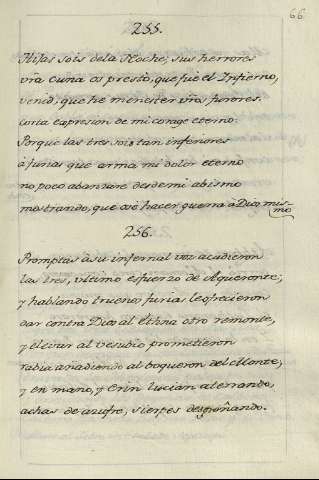 66.
255.
Hijas sois dela Noche; sus horrores
vr̃a cuna os prestò, que fue el Infierno,
venid, que he menester vr̃os furores.
corta expresion de mi corage eterno
Porque las tres sois tan inferiores
à furias que arma mi dolor eterno
no poco abanzarè desde mi abismo
mostrando, que osè hacer guerra à Dios mis-
mo
256.
Promptas à su infernal voz acudieron
las tres, ultimo esfuerzo de Aqueronte;
y hablando truenos, furias le ofrecieron
dar contra Dios al Ethna otro remonte,
y elevar al vesubio prometieron
rabia añadiendo al boqueron del Monte,
y en mano, y Crin lucian aterrando,
achas de azufre, sierpes desgreñando.